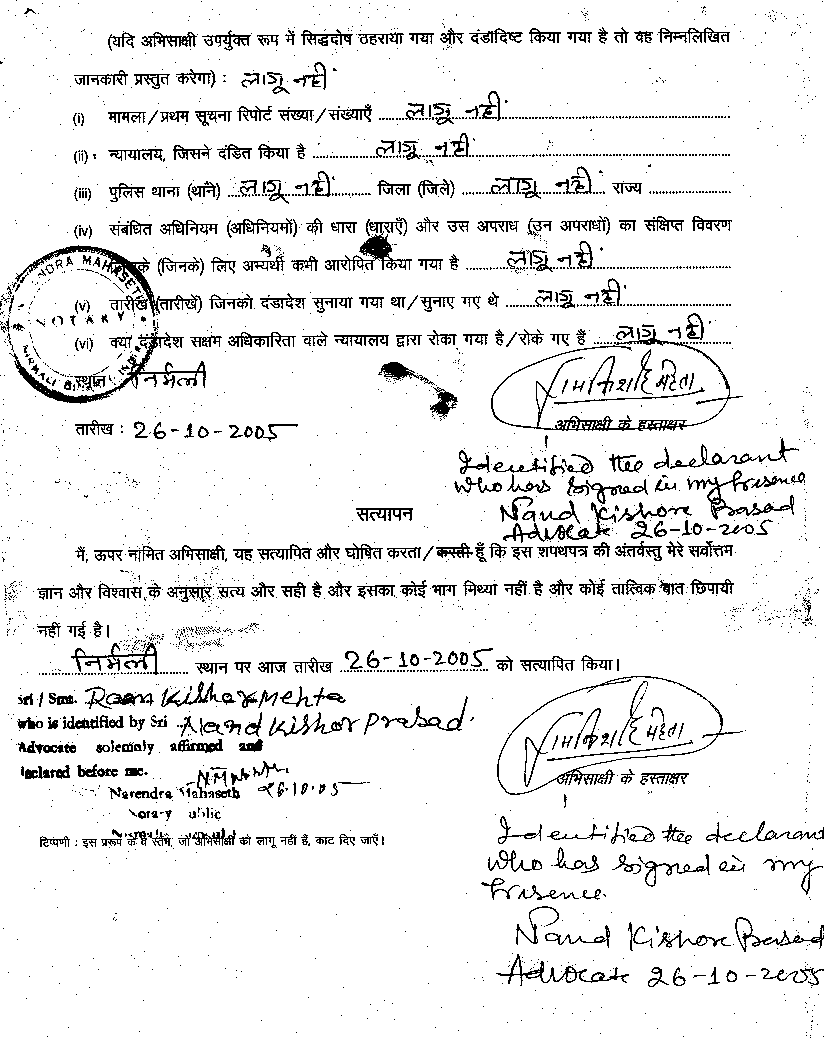 (यदि अभिसाक्षी उपर्युक्त रूप में सिद्धदोष ठहराया गया और दंडादिष्ट किया गया है तो वह निम्नलिखित
जानकारी प्रस्तुत करेगा) : लागू नहीं
(i) मामला/प्रथम सूचना रिपोर्ट संख्या/संख्याएँ लागू नहीं
(ii) : न्यायालय, जिसने दंडित किया है लागू नहीं
(iii) पुलिस थाना (थाने) लागू नहीं जिला (जिले) लागू नहीं राज्य
(iv) संबंधित अधिनियम (अधिनियमों) की धारा (धाराएँ) और उस अपराध (उन अपराधों) का संक्षिप्त विवरण
(जिनके) लिए अभ्यर्थी कभी आरोपित किया गया है लागू नहीं
(v) तारीख (तारीखें) जिनको दंडादेश सुनाया गया था/सुनाए गए थे लागू नहीं
(vi) क्या दंडादेश सक्षम अधिकारिता वाले न्यायालय द्वारा रोका गया है/रोके गए हैं लागू नहीं
NOTARY
स्थान निर्मली
तारीख : 26-10-2005
अभिसाक्षी के हस्ताक्षर
Identified the declarant
who has signed in my presence
Nand Kishore Prasad
Advocate 26-10-2005
सत्यापन
मैं, ऊपर नामित अभिसाक्षी, यह सत्यापित और घोषित करता/करती हूँ कि इस शपथपत्र की अंतर्वस्तु मेरे सर्वोत्तम
ज्ञान और विश्वास के अनुसार सत्य और सही है और इसका कोई भाग मिथ्या नहीं है और कोई तात्विक बात छिपायी
नहीं गई है।
निर्मली स्थान पर आज तारीख 26-10-2005 को सत्यापित किया।
Sri / Smt. Ram Kishor Mehta
who is identified by Sri Nand Kishor Prasad.
Advocate solemnly affirmed and
declared before me.
Narendra Mahaseth 26.10.05
Notary Public
टिप्पणी : इस प्ररूप के वे स्तंभ, जो अभिसाक्षी को लागू नहीं हैं, काट दिए जाएँ।
अभिसाक्षी के हस्ताक्षर
Identified the declarant
who has signed in my
presence.
Nand Kishore Prasad
Advocate 26-10-2005